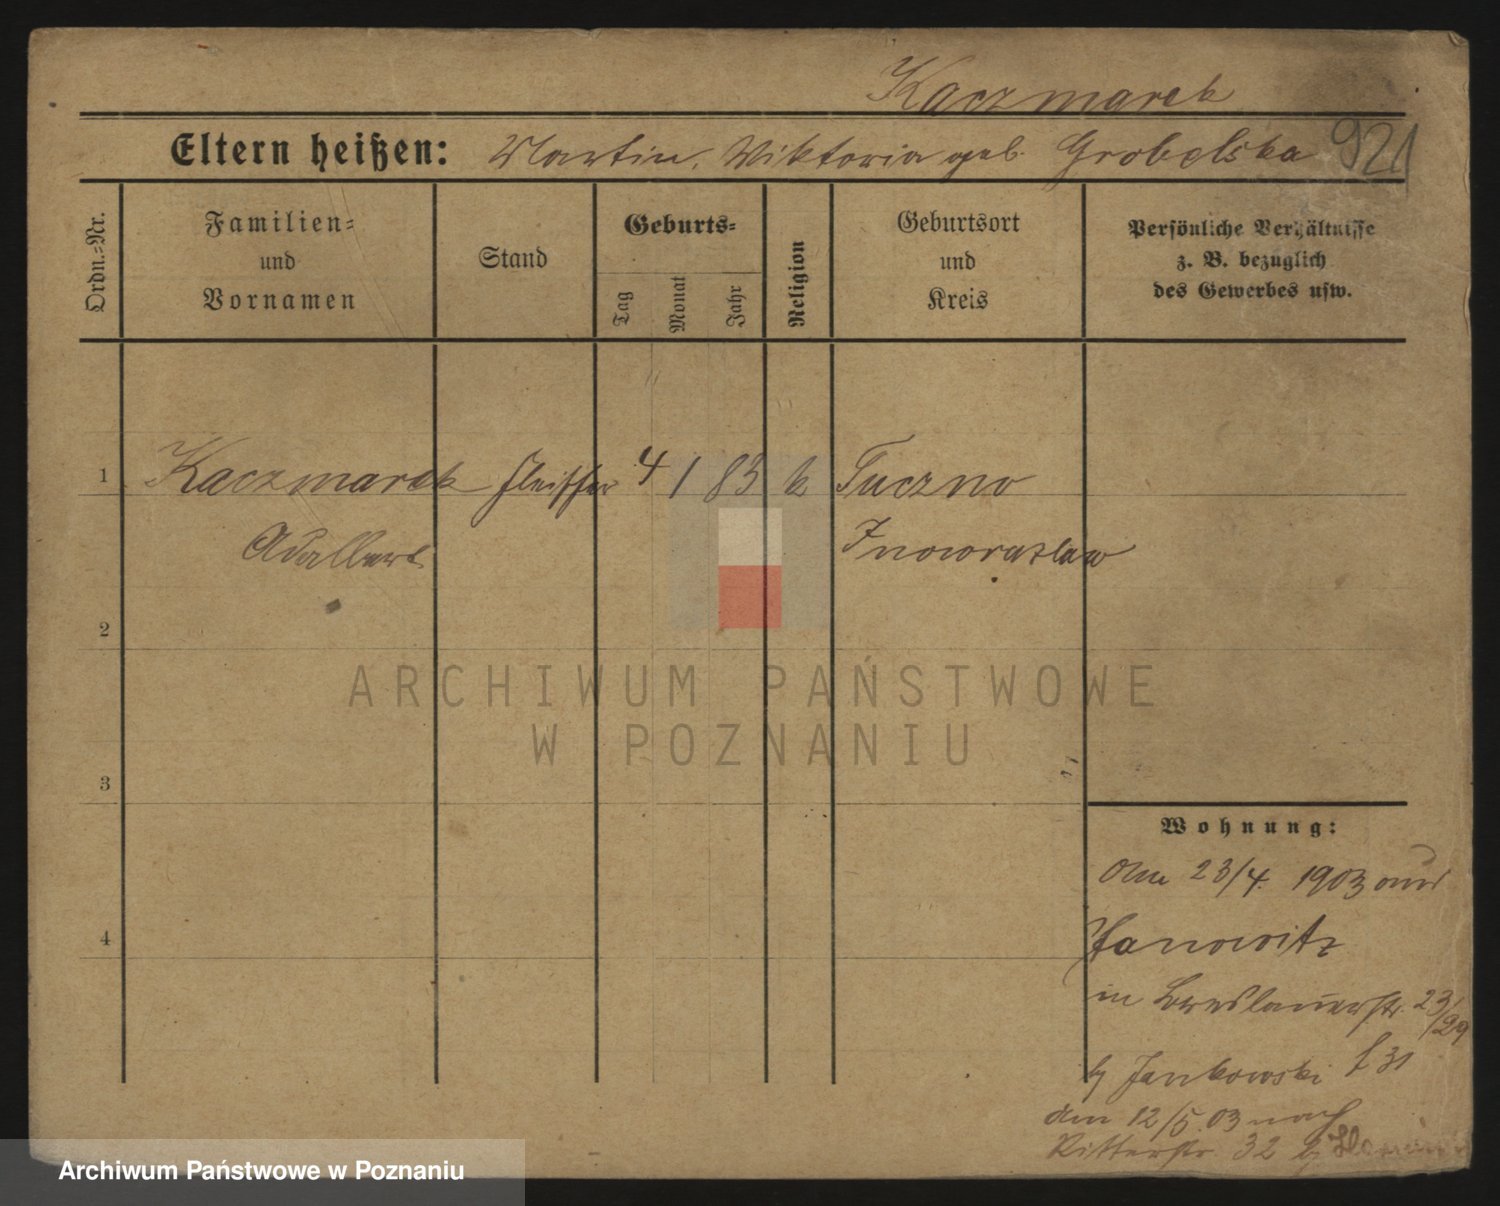 Kaczmarek
921
Eltern heißen: Martin, Wiktoria geb. Grobelska
Ordn.-Nr.
Familien-
und
Vornamen
Stand
Geburts-
Tag
Monat
Jahr
Religion
Geburtsort
und
Kreis
Persönliche Verhältnisse
z. B. bezüglich
des Gewerbes usw.
1 Kaczmarek 4 1 83 k Tuczno
Adalbert Inowrazlaw
2
ARCHIWUM PAŃSTWOWE
W POZNANIU
3
Wohnung:
23/4. 1903 aus
Janowitz
in Breslauerstr. 23/29
b/ Jankowski f 31
4
am 12/5. 03 nach
Ritterstr. 32 b/
Archiwum Państwowe w Poznaniu